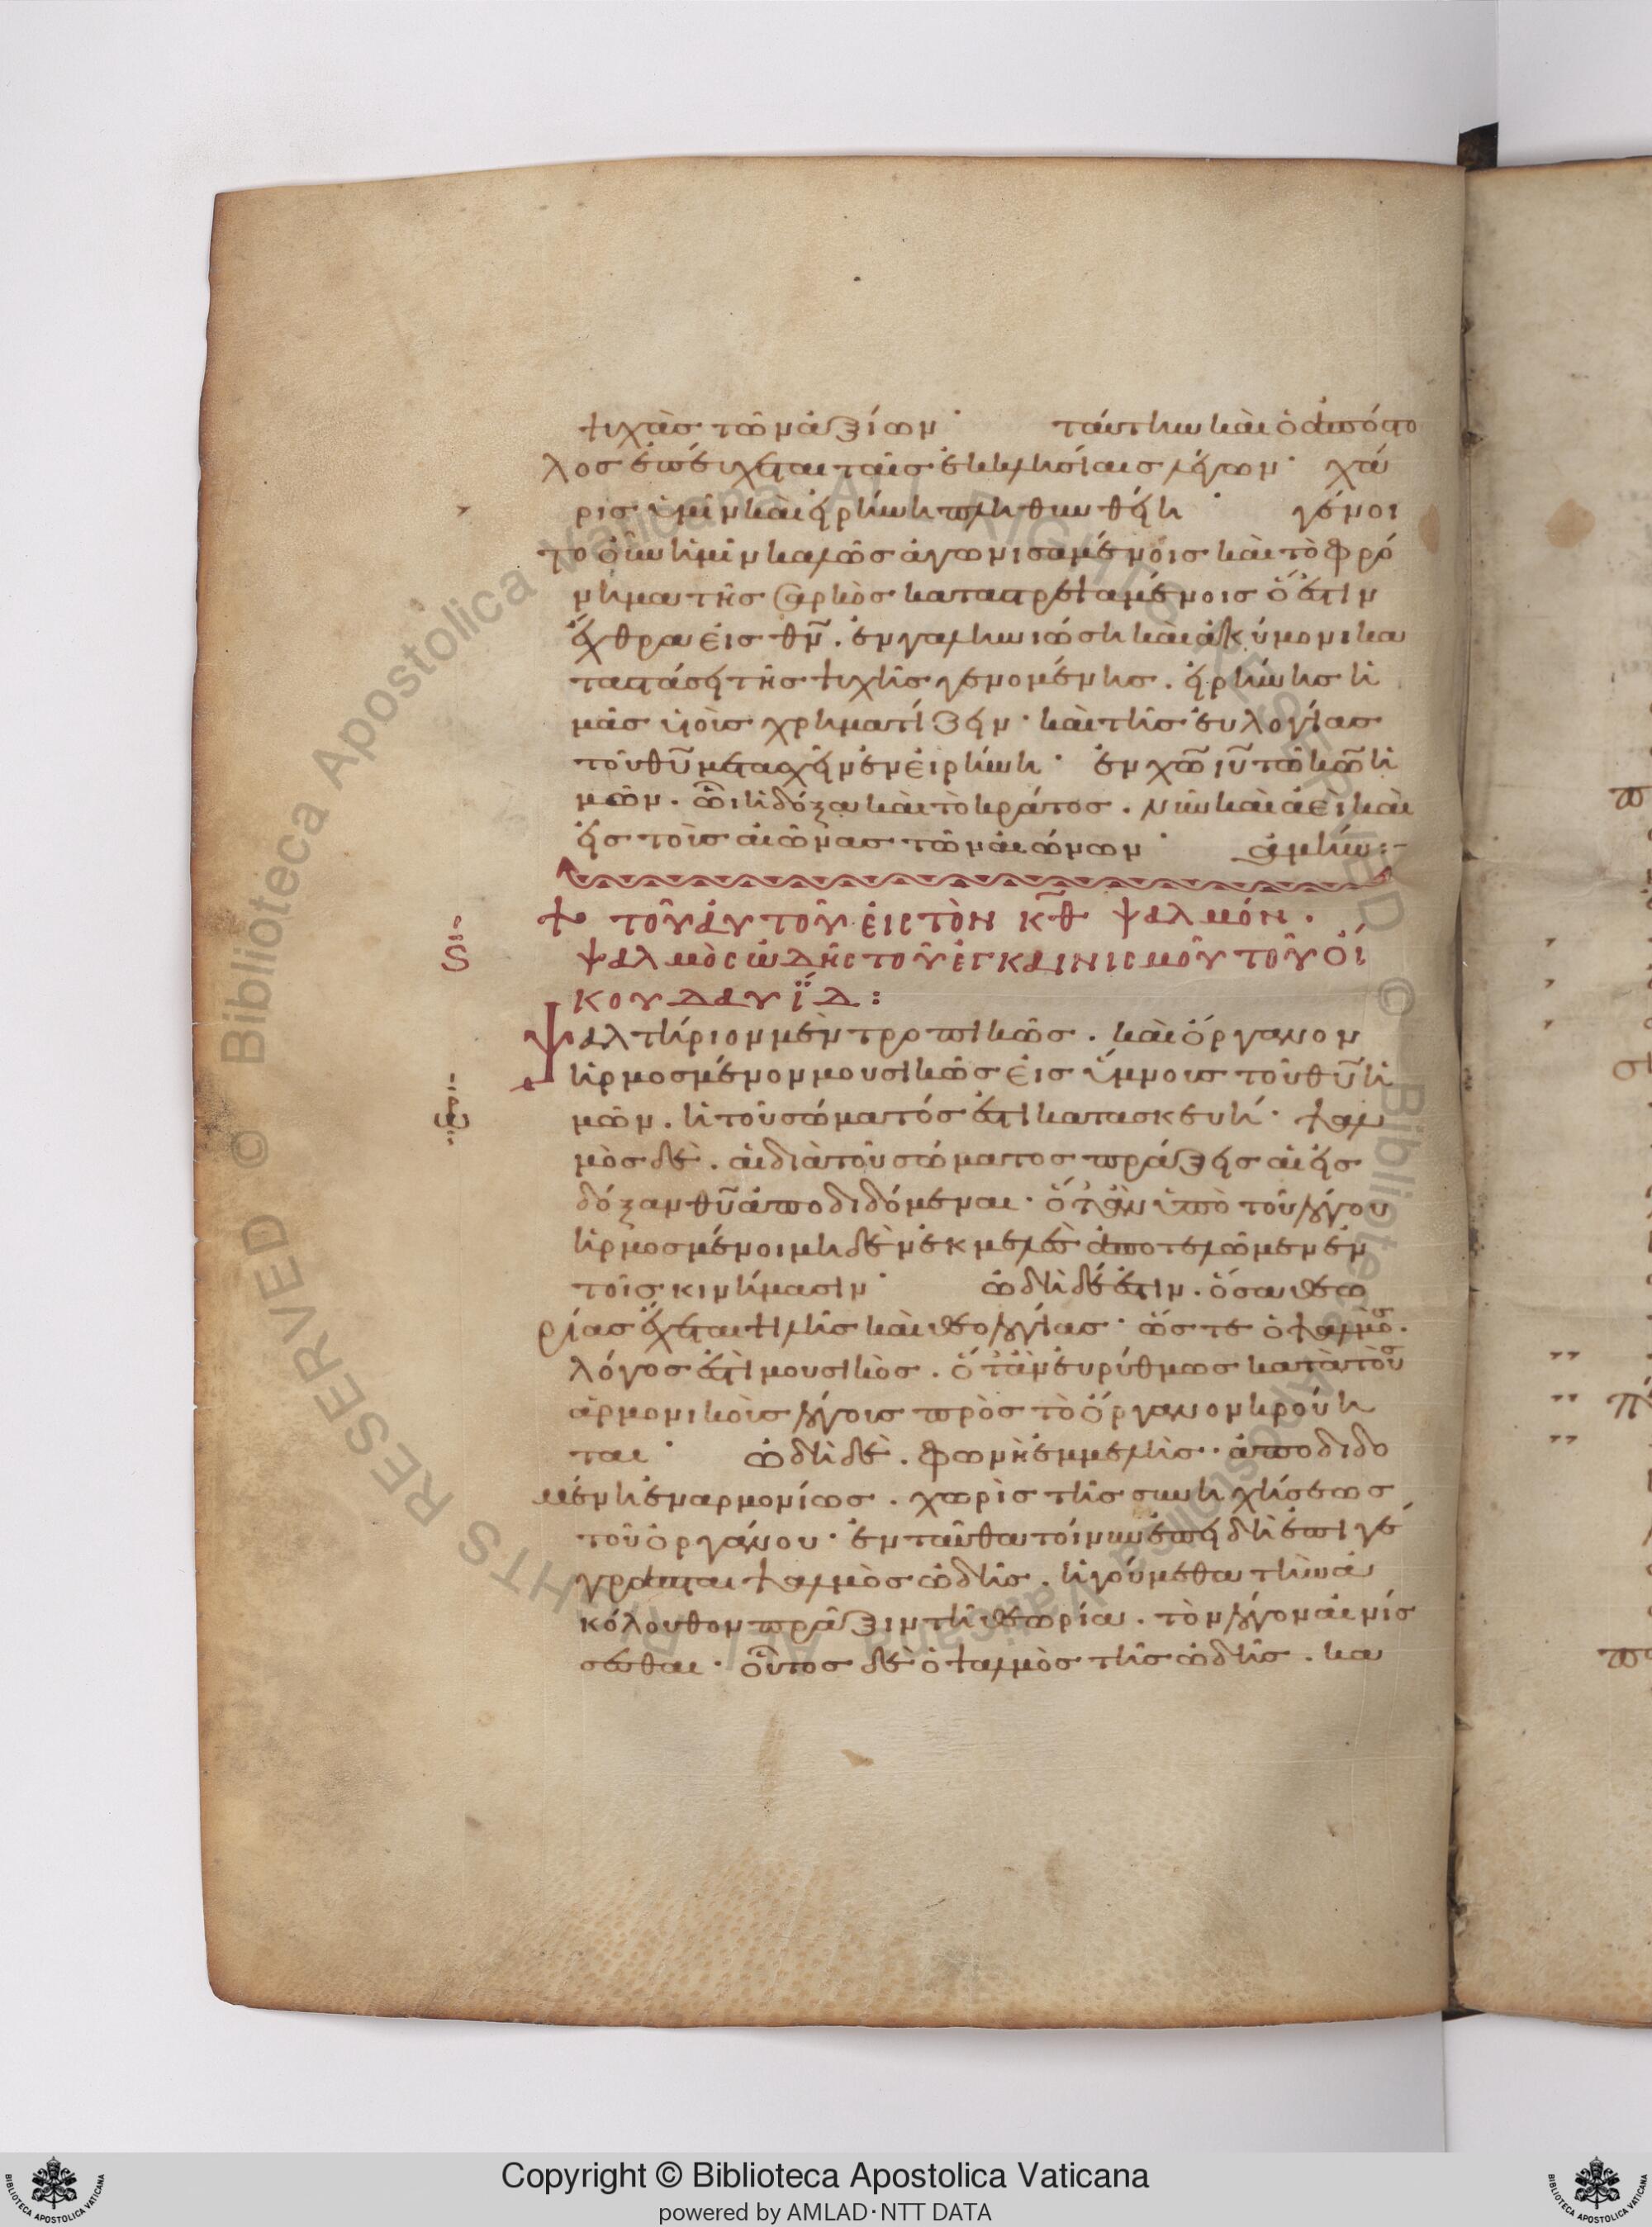 ψυχὰς τῶν ἀξίων· ταύτην καὶ ὁ ἀπόστο
λος ἐπεύχεται ταῖς ἐκκλησίαις λέγων· χά
ρις ὑμῖν καὶ εἰρήνη πληθυνθείη· γένοι
το οὖν ἡμῖν καλῶς ἀγωνισαμένοις καὶ τὸ φρό
νημα τῆς σαρκὸς καταπρεψαμένοις ὅ ἐστιν
ἔχθρα εἰς θν̄. ἐν γαληνιώση καὶ ἀκύμονι κα
ταστάσει τῆς ψυχῆς γενομένης. εἰρήνης ἡ
μᾶς υἱοὺς χρηματίζειν· καὶ τῆς εὐλογίας
τοῦ θῡ μετασχεῖν ἐν εἰρήνη· ἐν χω̄ ιῡ τῶ κω̄ ἡ
μῶν. ὧι ἡ δόξα καὶ τὸ κράτος. νῦν καὶ ἀεὶ καὶ
εἰς τοὺς αἰῶνας τῶν αἰώνων· ἀμήν:-
ΤΟΥ ΑΥΤΟΥ ΕἰΣ ΤῸΝ Κ̅Θ̅ ΨΑΛΜΌΝ.
ΨΑΛΜῸΣ ὨΔΗΣ ΤΟΥ ἘΓΚΑΙΝΙΣΜΟΥ ΤΟΥ Οἴ
ΚΟΥ ΔΑΥΪΔ:
Ϛ
Ψαλτήριον μὲν τροπικῶς. καὶ ὄργανον
ἡρμοσμένον μουσικῶς εἰς ὕμνους τοῦ θῡ ἡ
μῶν. ἡ τοῦ σώματός ἐστι κατασκευή· ψαλ
μὸς δὲ. αἱ διὰ τοῦ σώματος πράξεις αἱ εἰς
δόξαν θῡ ἀποδιδόμεναι· ὅτ' ἂν ὑπὸ τοῦ λόγου
ἡρμοσμένοι μηδὲν ἐκμελὲς ἀποτελῶμεν ἐν
τοῖς κινήμασιν· ὠδὴ δέ ἐστιν. ὅσα θεω
ρίας ἔχεται ὑψηλῆς καὶ θεολογίας· ὥστε ὁ ψαλμὸς.
λόγος ἐστὶ μουσικὸς. ὅτ' ἂν εὐρύθμως κατὰ τοὺς
ἁρμονικοὺς λόγους πρὸς τὸ ὄργανον κρούη
ται· ὠδὴ δὲ. φωνὴ ἐμμελὴς·· ἀποδιδο
μένη ἐναρμονίως. χωρὶς τῆς συνηχήσεως
τοῦ ὀργάνου· ἐνταῦθα τοίνυν ἐπειδὴ ἐπιγέ
γραπται ψαλμὸς ὠδῆς. ἡγούμεθα τὴν ἀ
κόλουθον πρᾶξιν τῆ θεωρία. τὸν λόγον αἰνίσ
σεσθαι· οὗτος δὲ ὁ ψαλμὸς τῆς ὠδῆς. κα
Copyright © Biblioteca Apostolica Vaticana
powered by AMLAD·NTT DATA